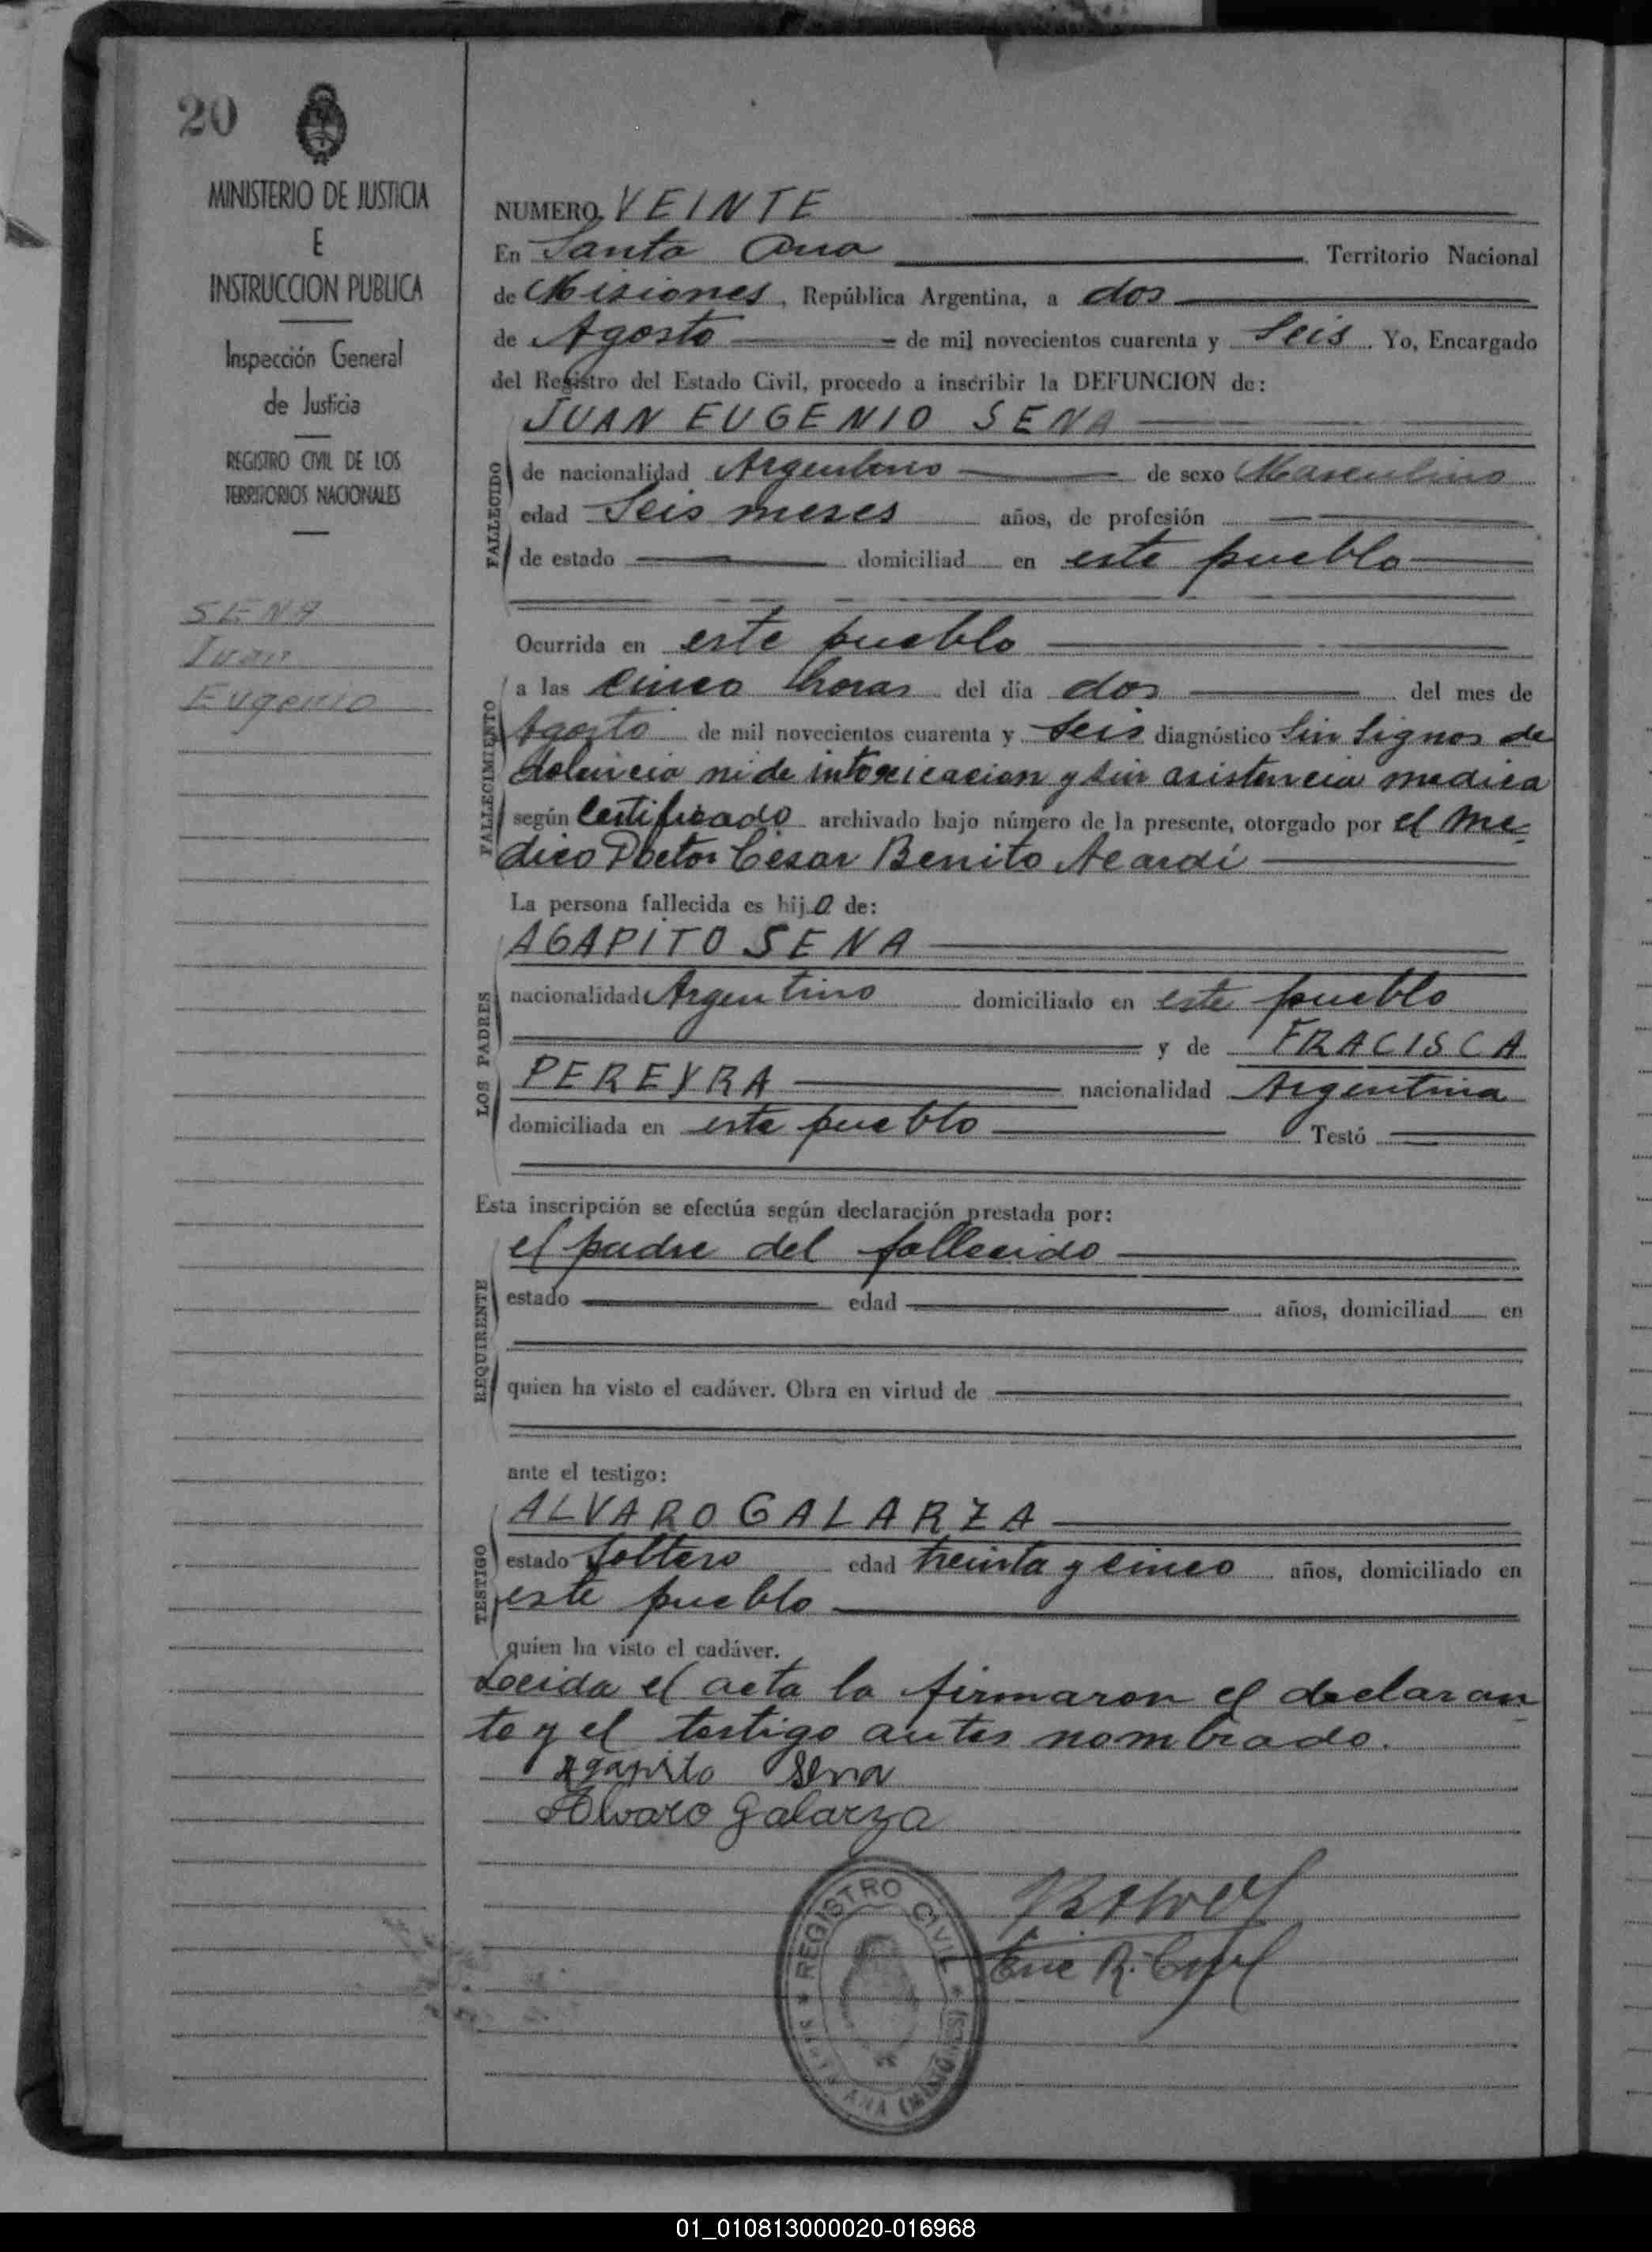 20
MINISTERIO DE JUSTICIA
E
INSTRUCCION PUBLICA
Inspección General
de Justicia
REGISTRO CIVIL DE LOS
TERRITORIOS NACIONALES
SENA
Juan
Eugenio
NUMERO VEINTE
En Santa Ana Territorio Nacional
de Misiones, República Argentina, a dos
de Agosto de mil novecientos cuarenta y Seis. Yo, Encargado
del Registro del Estado Civil, procedo a inscribir la DEFUNCION de:
JUAN EUGENIO SENA
FALLECIDO
de nacionalidad Argentino de sexo Masculino
edad Seis meses años, de profesión
de estado domiciliad en este pueblo
Ocurrida en este pueblo
FALLECIMIENTO
a las cinco horas del día dos del mes de
Agosto de mil novecientos cuarenta y Seis diagnóstico Sin Signos de
dolencia ni de intoxicacion y sin asistencia medica
según Certificado archivado bajo número de la presente, otorgado por el me-
dico Doctor Cesar Benito Acardi
La persona fallecida es hijo de:
AGAPITO SENA
LOS PADRES
nacionalidad Argentino domiciliado en este pueblo
y de FRACISCA
PEREYRA nacionalidad Argentina
domiciliada en este pueblo Testó
Esta inscripción se efectúa según declaración prestada por:
el padre del fallecido
REQUIRENTE
estado edad años, domiciliad en
quien ha visto el cadáver. Obra en virtud de
ante el testigo:
ALVARO GALARZA
TESTIGO
estado Soltero edad treinta y cinco años, domiciliado en
este pueblo
quien ha visto el cadáver.
Leeida el acta la firmaron el declaran
te y el testigo antes nombrado.
Agapito Sena
Alvaro Galarza
REGISTRO CIVIL
SANTA ANA (MISIONES)
Eric R.
01_010813000020-016968